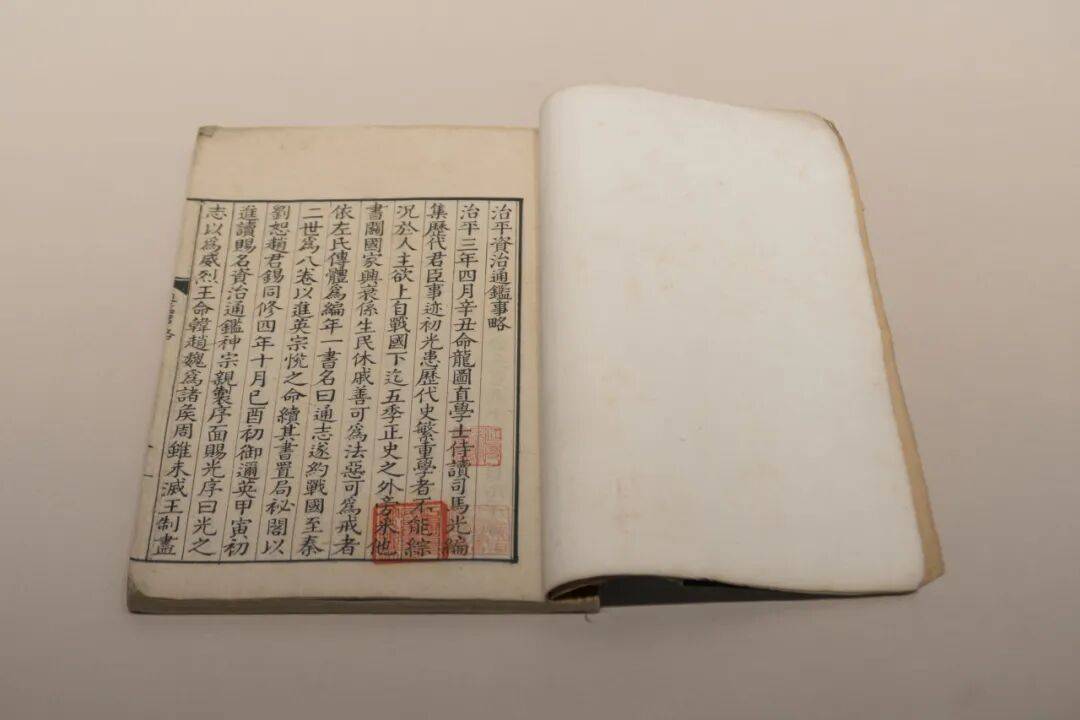 治平資治通鑑事略
治平三年四月辛丑命龍圖直學士侍讀司馬光編
集歷代君臣事迹初光患歷代史繁重學者不能綜
況於人主欲上自戰國下迄五季正史之外旁采他
書關國家興衰係生民休戚善可爲法惡可爲戒者
依左氏傳體爲編年一書名曰通志遂約戰國至秦
二世爲八卷以進英宗悅之命續其書置局祕閣以
劉恕趙君錫同修四年十月已酉初御邇英甲寅初
進讀賜名資治通鑑神宗親製序面賜光序曰光之
志以爲威烈王命韓趙魏爲諸矦周雖未滅王制盡